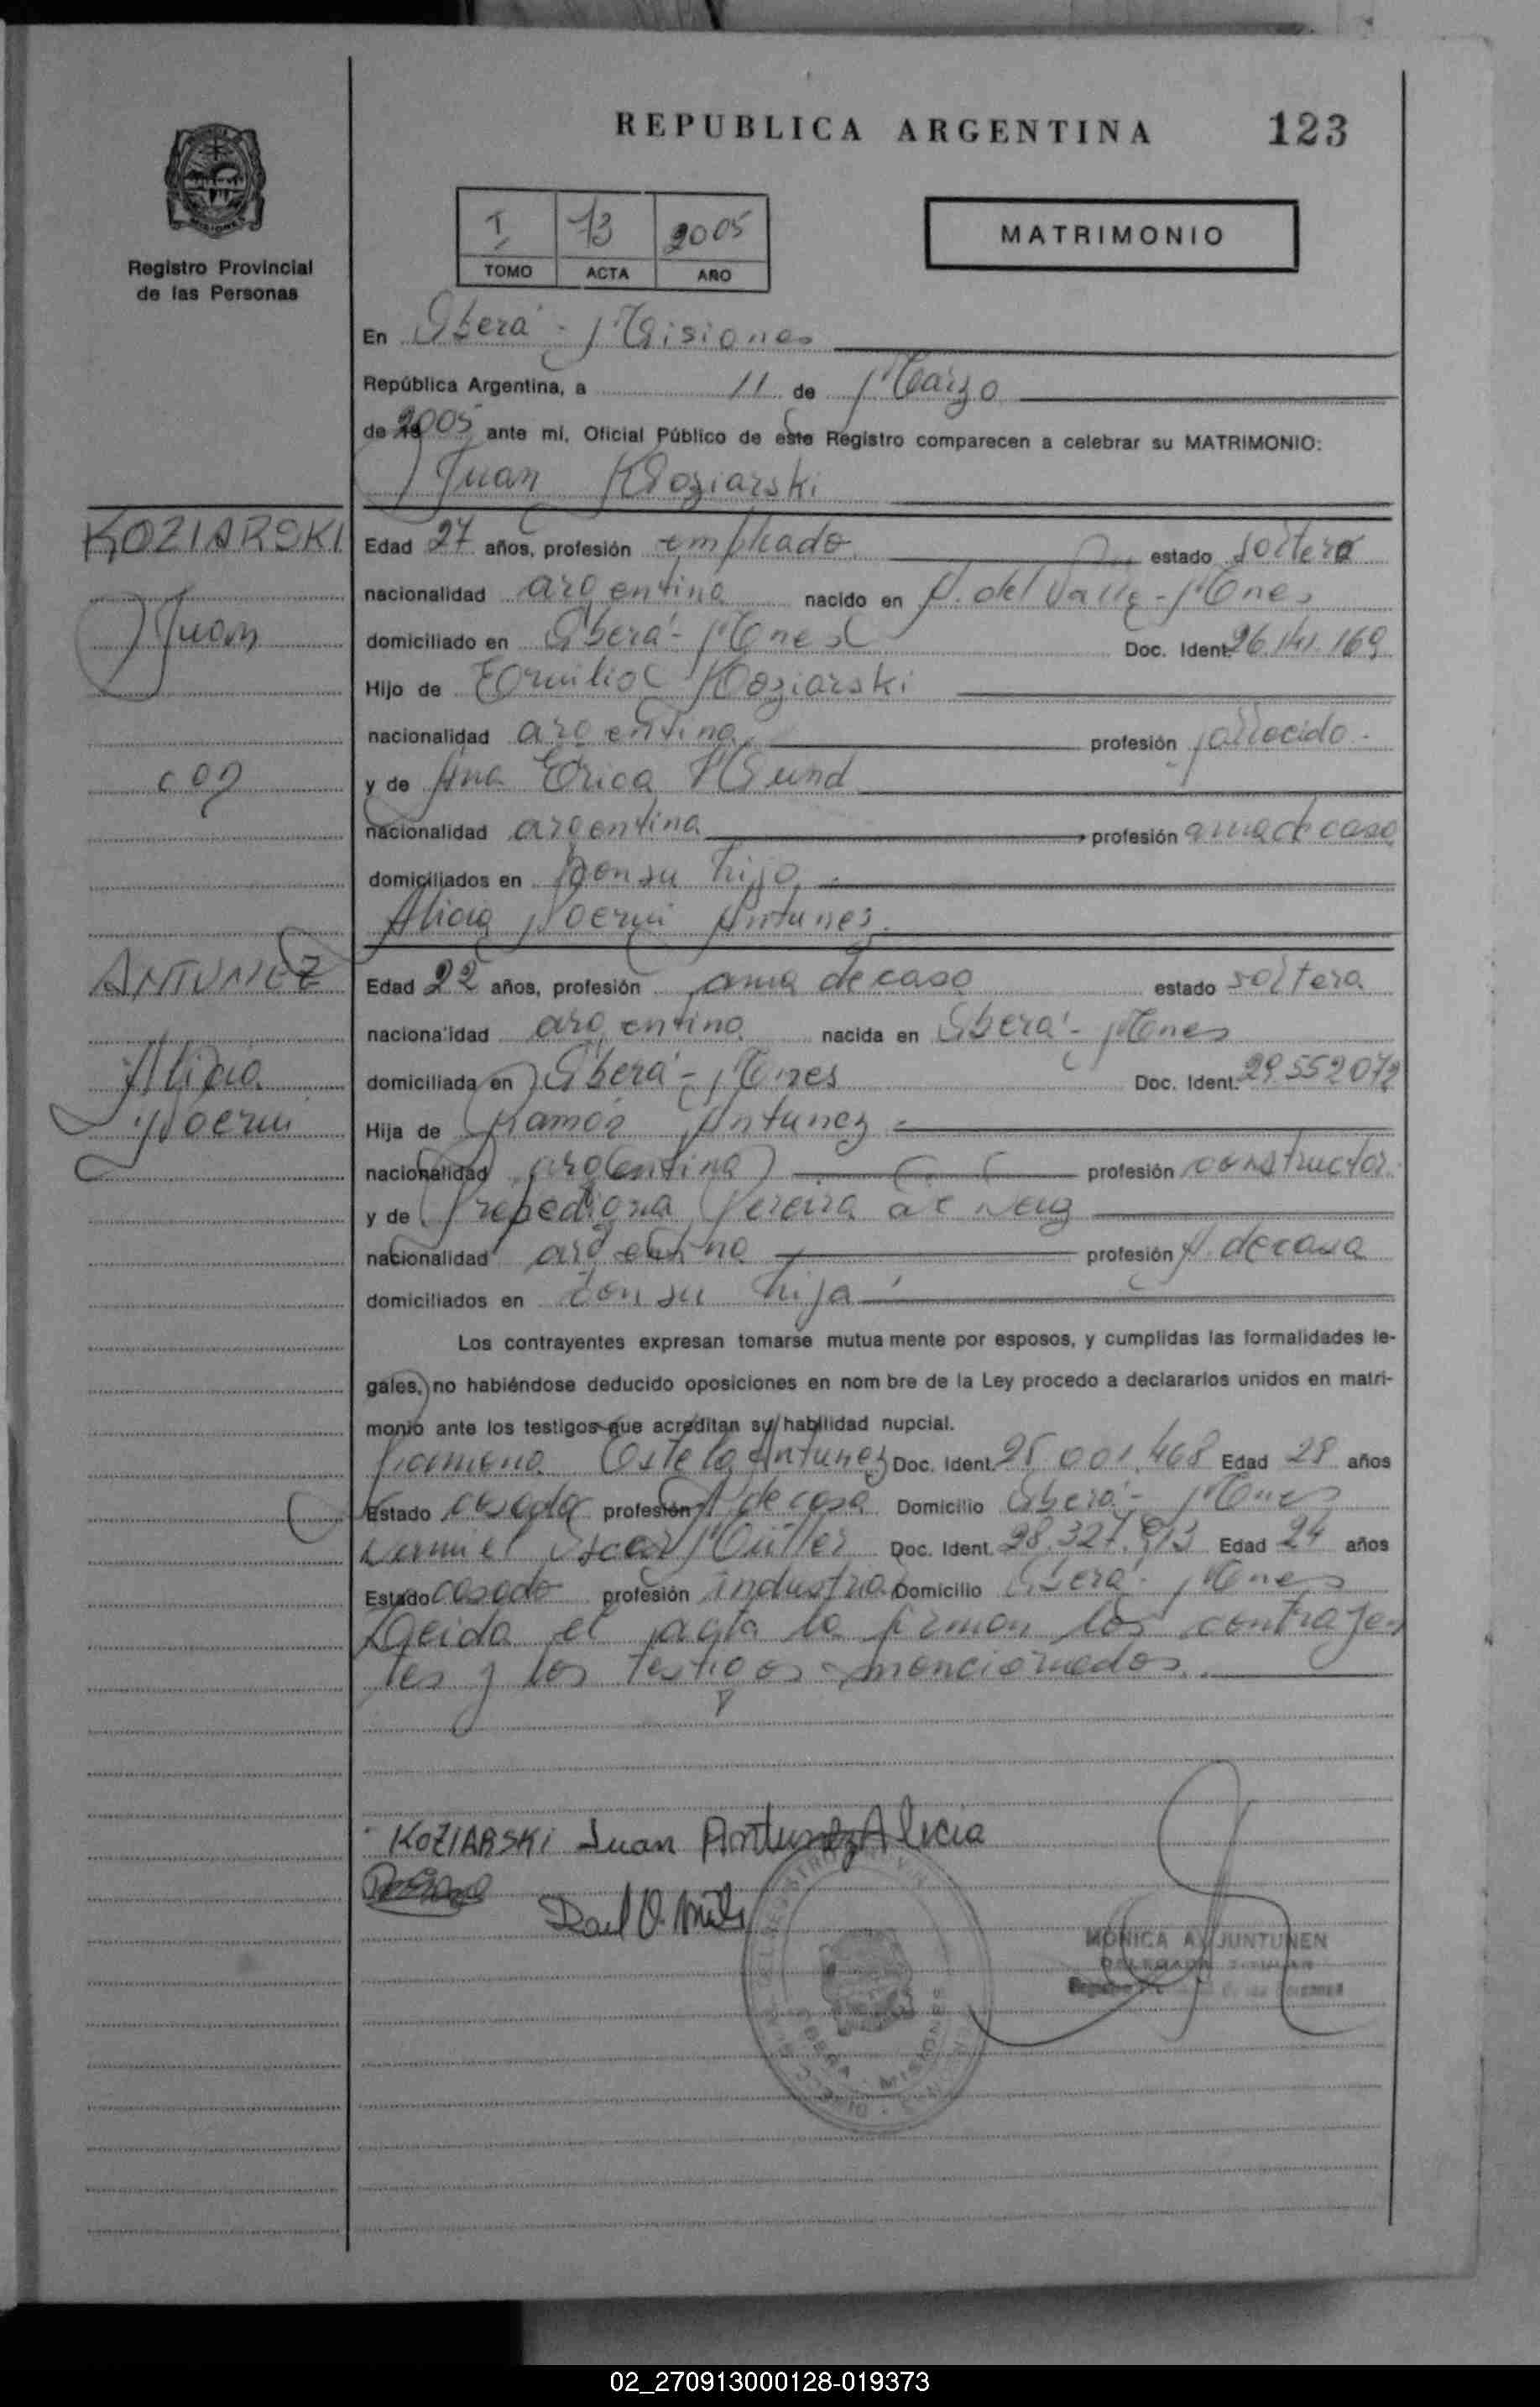 REPUBLICA ARGENTINA 123
MISIONES
Registro Provincial
de las Personas
I 73 2005
TOMO ACTA AÑO
MATRIMONIO
En Oberá - Misiones
República Argentina, a 11 de Marzo
de 2005 ante mí, Oficial Público de este Registro comparecen a celebrar su MATRIMONIO:
Juan Koziarski
KOZIARSKI
Juan
con
Edad 27 años, profesión empleado estado soltero
nacionalidad argentina nacido en A. del Valle - Mnes
domiciliado en Oberá - Mnes Doc. Ident. 26.141.169
Hijo de Emilio Koziarski
nacionalidad argentina profesión fallecido.
y de Ana Erica
nacionalidad argentina profesión ama de casa
domiciliados en con su hijo
Alicia Noemi Antunes.
ANTUNEZ
Alicia
Noemi
Edad 22 años, profesión ama de casa estado soltera
nacionalidad argentina nacida en Oberá - Mnes
domiciliada en Oberá - Mnes Doc. Ident. 29.552.072
Hija de Ramón Antunez
nacionalidad argentina profesión constructor.
y de Pereira de
nacionalidad argentina profesión A. de casa
domiciliados en con su hija
Los contrayentes expresan tomarse mutua mente por esposos, y cumplidas las formalidades le-
gales, no habiéndose deducido oposiciones en nom bre de la Ley procedo a declararlos unidos en matri-
monio ante los testigos que acreditan su habilidad nupcial.
Ramona Estela Antunez Doc. Ident. 25.001.468 Edad 28 años
Estado casada profesión A de casa Domicilio Oberá - Mnes
Oscar Müller Doc. Ident. 28.327.913 Edad 24 años
Estado casado profesión industrial Domicilio Oberá - Mnes
Leida el acta la firman los contrayen
tes y los testigos mencionados.
KOZIARSKI Juan Antunez Alicia
MONICA A. JUNTUNEN
DELEGADA TITULAR
OBERA MISIONES
02_270913000128-019373